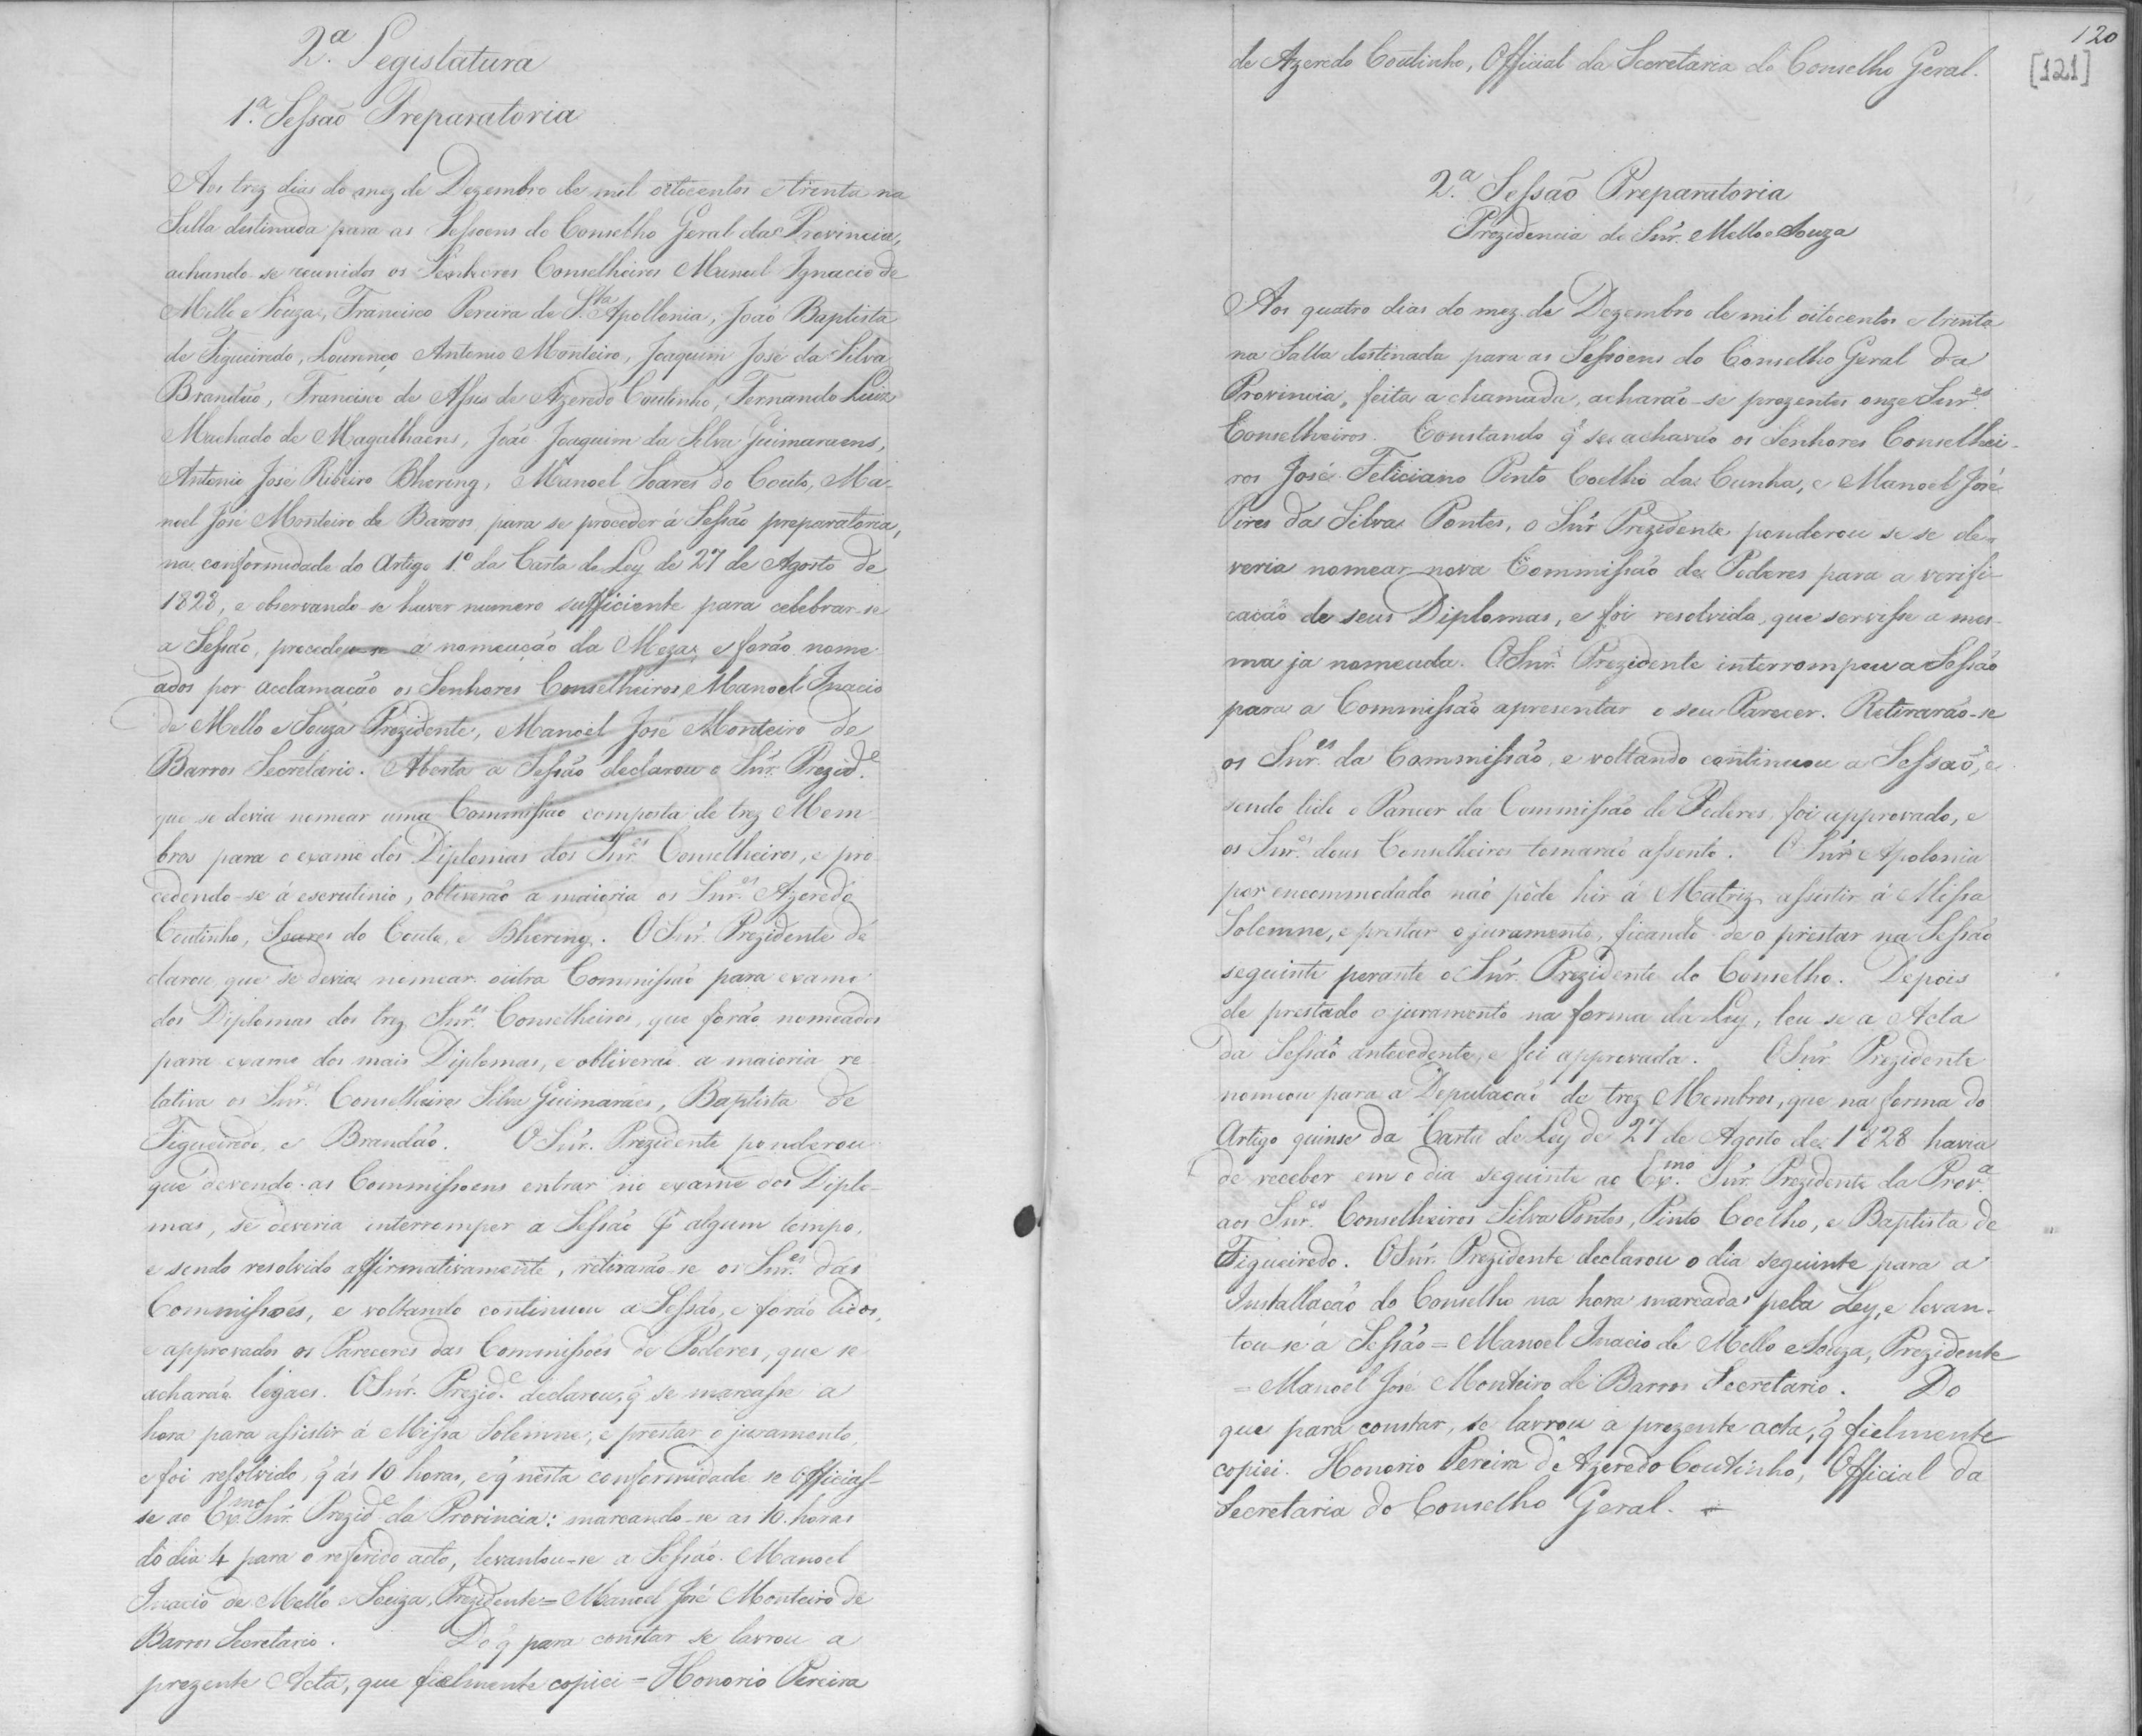 2.ª Legislatura
1.ª Sessão Preparatoria
Aos trez dias do mez de Dezembro de mil oitocentos e trinta na
Salla destinada para as Sessoens do Conselho Geral da Provincia,
achando-se reunidos os Senhores Conselheiros Manoel Ignacio de
Mello e Souza, Francisco Pereira de S.ta Apollonia, João Baptista
de Figueiredo, Lourenço Antonio Monteiro, Joaquim José da Silva
Brandão, Francisco de Assis de Azeredo Coutinho, Fernando Luiz
Machado de Magalhaens, João Joaquim da Silva Guimaraens,
Antonio José Ribeiro Bhering, Manoel Soares do Couto, Ma-
noel José Monteiro de Barros, para se proceder á Sessão preparatoria,
na conformidade do Artigo 1.º da Carta de Ley de 27 de Agosto de
1828, e observando-se haver numero sufficiente para celebrar-se
a Sessão, procedeu-se á nomeação da Meza, e forão nome
ados por acclamação os Senhores Conselheiros Manoel Inacio
de Mello e Souza Prezidente, Manoel José Monteiro de
Barros Secretario. Aberta a Sessão declarou o Snr. Prezid.e
que se devia nomear uma Commissão composta de trez Mem
bros para o exame dos Diplomas dos Snr.es Conselheiros, e pro
cedendo-se á escrutinio, obtiverão a maioria os Snr.es Azeredo
Coutinho, Soares do Couto, e Bhering. O Snr. Prezidente de
clarou que se devia nomear outra Commissão para exame
dos Diplomas dos trez Snr.es Conselheiros, que forão nomeados
para exame dos mais Diplomas, e obtiverão a maioria re
lativa os Snr.es Conselheiros Silva Guimarães, Baptista de
Figueiredo, e Brandão. O Snr. Prezidente ponderou
que devendo as Commissoens entrar no exame dos Diplo-
mas, se deveria interromper a Sessão p algum tempo,
e sendo resolvido affirmativamente, retirarão-se os Snr.es das
Commissões, e voltando continuou a Sessão, e forão lidos,
e approvados os Pareceres das Commissões de Poderes, que se
acharão legaes. O Snr. Prezid.e declarou, q̃ se marcasse a
hora para assistir á Missa Solemne, e prestar o juramento,
e foi resolvido, q̃ ás 10 horas, e q̃ nesta conformidade se officias-
se ao Ex.mo Snr. Prezid.e da Provincia: marcando-se as 10 horas
do dia 4 para o referido acto, levantou-se a Sessão. Manoel
Inacio de Mello e Souza, Prezidente = Manoel José Monteiro de
Barros Secretario. Do q̃ para constar se lavrou a
prezente Acta, que fielmente copiei = Honorio Pereira
120
[121]
de Azeredo Coutinho, Official da Secretaria do Conselho Geral.
2.ª Sessão Preparatoria
Prezidencia do Snr. Mello e Souza
Aos quatro dias do mez de Dezembro de mil oitocentos e trenta
na Salla destinada para as Sessoens do Conselho Geral da
Provincia, feita a chamada, acharão-se prezentes onze Snr.es
Conselheiros. Constando q̃ se achavão os Senhores Conselhei-
ros José Feliciano Pinto Coelho da Cunha, e Manoel José
Pires da Silva Pontes, o Snr Prezidente ponderou se se de-
veria nomear nova Commissão de Poderes para a verifi-
cação de seus Diplomas, e foi resolvido, que servisse a mes-
ma ja nomeada. O Snr. Prezidente interrompeu a Sessão
para a Commissão apresentar o seu Parecer. Retirarão-se
os Snr.es da Commissão, e voltando continuou a Sessão, e
sendo lido o Parecer da Commissão de Poderes, foi approvado, e
os Snr.es dous Conselheiros tomarão assento. O Snr. Apolonia
por encommodado não pôde hir á Matriz assistir á Missa
Solemne, e prestar o juramento, ficando de o prestar na Sessão
seguinte perante o Snr. Prezidente do Conselho. Depois
de prestado o juramento na forma da Ley, leu se a Acta
da Sessão antecedente, e foi approvada. O Snr. Prezidente
nomeou para a Deputação de trez Membros, que na forma do
Artigo quinse da Carta de Ley de 27 de Agosto de 1828 havia
de receber em o dia seguinte ao Ex.mo Snr. Prezidente da Prov.ª
aos Snr.es Conselheiros Silva Pontes, Pinto Coelho, e Baptista de
Figueiredo. O Snr. Prezidente declarou o dia seguinte para a
Installação do Conselho na hora marcada pela Ley, e levan-
tou-se a Sessão = Manoel Inacio de Mello e Souza, Prezidente
= Manoel José Monteiro de Barros Secretario. Do
que para constar, se lavrou a prezente acta, q̃ fielmente
copiei. Honorio Pereira de Azeredo Coutinho, Official da
Secretaria do Conselho Geral.